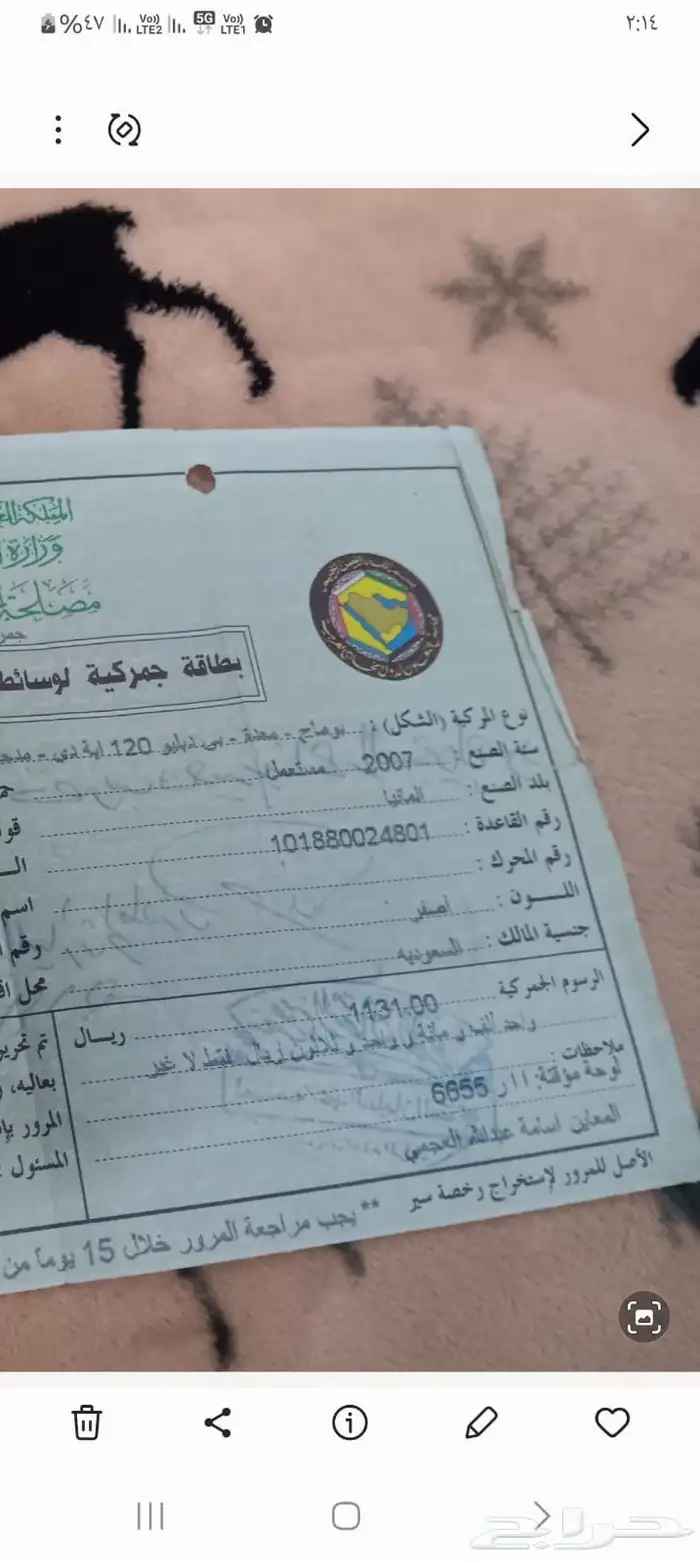 ٢:١٤
%٤٧
Vo)) LTE2
5G
Vo)) LTE1
المملكة
وزارة
مصلحة
جمر
بطاقة جمركية لوسائط
نوع المركبة (الشكل) : بوماج - معدة - بى دبليو 120 ايه دى -
سنة الصنع : 2007 مستعمل
بلد الصنع : المانيا
رقم القاعدة : 101880024801
رقم المحرك :
اللـــون : اصفر
جنسية المالك : السعودية
اسم
رقم
محل
الرسوم الجمركية 1131.00 ريـال
واحد الف و مائة و واحد و ثلاثون ريال فقط لا غير
ملاحظات :
لوحة مؤقتة: ا ا ر 6655
المعاين اسامة عبدالله العجمي
تم تحرير
بعاليه،
المرور
المسئول
الأصل للمرور لإستخراج رخصة سير ** يجب مراجعة المرور خلال 15 يوماً من
حراج